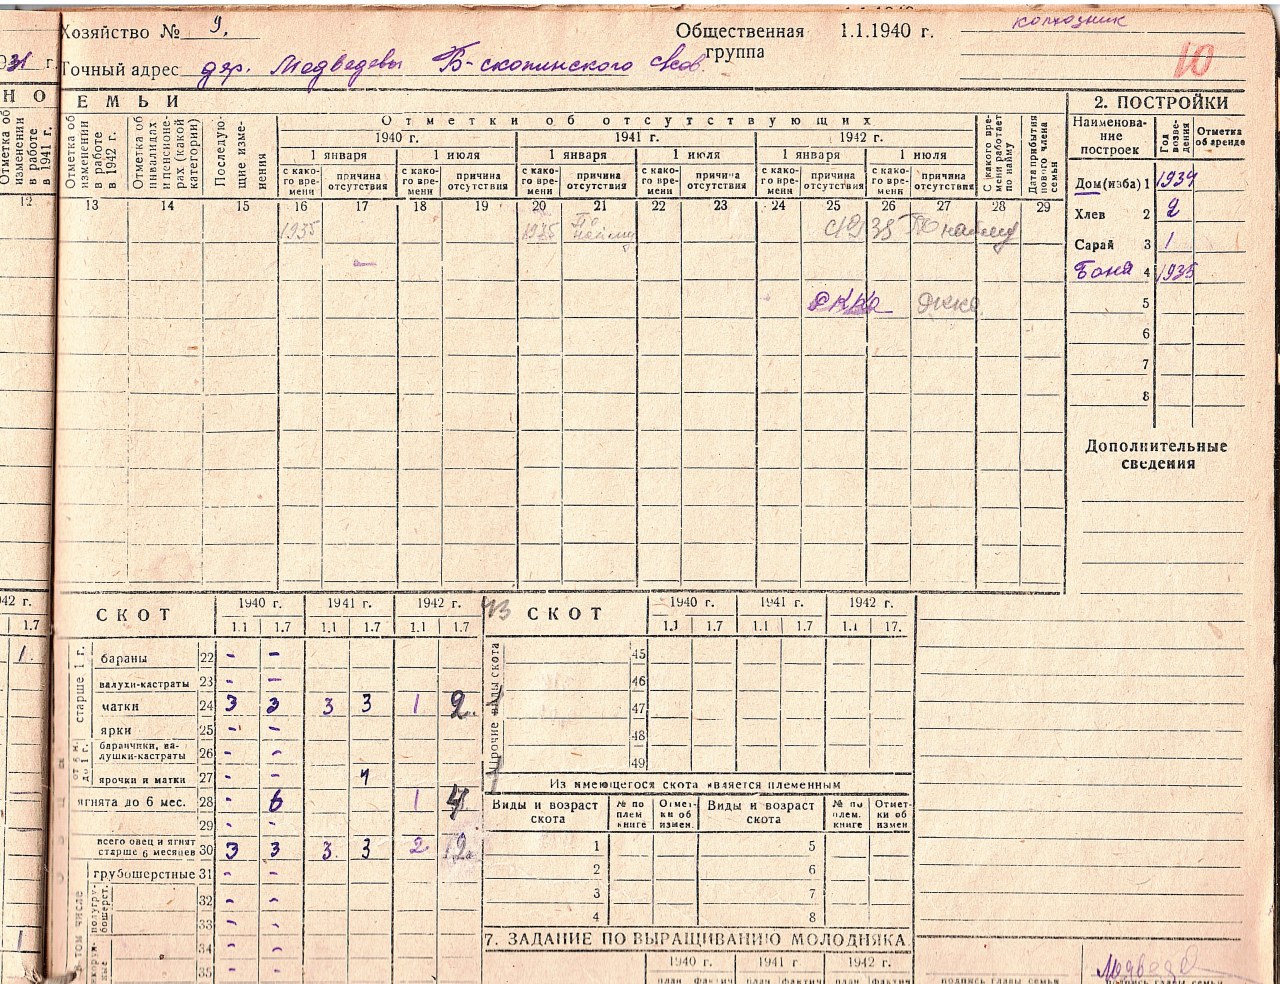 Хозяйство № 9.
Общественная группа
1.1.1940 г.
колхозник
10
Точный адрес дер. Медведевы Б-скопинского
Н О
Е М Ь И
Отметка об изменении в работе в 1941 г.
Отметка об изменении в работе в 1942 г.
Отметка об инвалидах и пенсионерах (какой категории)
Последующие изменения
Отметки об отсутствующих
1940 г. 1941 г. 1942 г.
1 января 1 июля 1 января 1 июля 1 января 1 июля
с какого времени причина отсутствия с какого времени причина отсутствия с какого времени причина отсутствия с какого времени причина отсутствия с какого времени причина отсутствия с какого времени причина отсутствия
С какого времени работает по найму
Дата прибытия нового члена семьи
12 13 14 15 16 17 18 19 20 21 22 23 24 25 26 27 28 29
1935 1935 По найму с 1935 По найму
РККА РККА
2. ПОСТРОЙКИ
Наименование построек Год возведения Отметка об аренде
Дом (изба) 1 1939
Хлев 2 2
Сарай 3 1
Баня 4 1935
5
6
7
8
Дополнительные сведения
42 г.
1.7
1.
1
СКОТ 1940 г. 1941 г. 1942 г.
1.1 1.7 1.1 1.7 1.1 1.7
старше 1 г.
бараны 22 - -
валухи-кастраты 23 - -
матки 24 3 3 3 3 1 2
ярки 25 - -
от 6 м. до 1 г.
баранчики, валушки-кастраты 26 - -
ярочки и матки 27 - -
ягнята до 6 мес. 28 - 6 1 4
29 - -
всего овец и ягнят старше 6 месяцев 30 3 3 3 3 2 2
в том числе
грубошерстные 31 - -
полугрубошерст.
32 - -
33 - -
34 - -
35 - -
43
СКОТ 1940 г. 1941 г. 1942 г.
1.1 1.7 1.1 1.7 1.1 17.
Прочие виды скота
45
46
47
48
49
Из имеющегося скота является племенным
Виды и возраст скота № по плем книге Отметки об измен. Виды и возраст скота № по плем. книге Отметки об измен
1 5
2 6
3 7
4 8
7. ЗАДАНИЕ ПО ВЫРАЩИВАНИЮ МОЛОДНЯКА.
1940 г. 1941 г. 1942 г.
план фактич план фактич план фактич
Медведе
подпись главы семьи подпись главы семьи